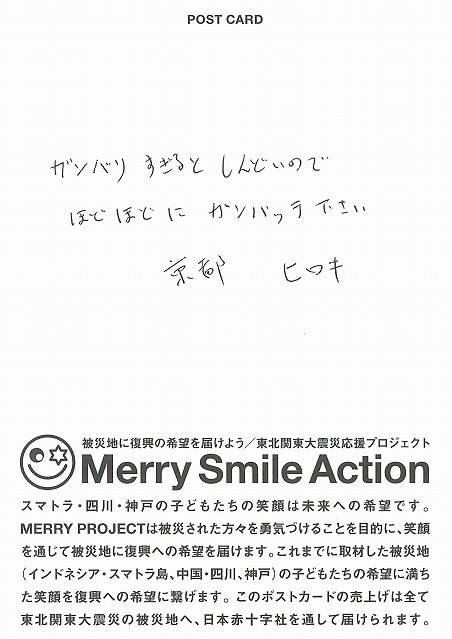 POST CARD
ガンバリ すぎると しんどいので
ほどほどに ガンバッテ 下さい
京都 ヒロキ
被災地に復興の希望を届けよう／東北関東大震災応援プロジェクト
Merry Smile Action
スマトラ・四川・神戸の子どもたちの笑顔は未来への希望です。
MERRY PROJECTは被災された方々を勇気づけることを目的に、笑顔
を通じて被災地に復興への希望を届けます。これまでに取材した被災地
（インドネシア・スマトラ島、中国・四川、神戸）の子どもたちの希望に満ち
た笑顔を復興への希望に繋げます。このポストカードの売上げは全て
東北関東大震災の被災地へ、日本赤十字社を通して届けられます。